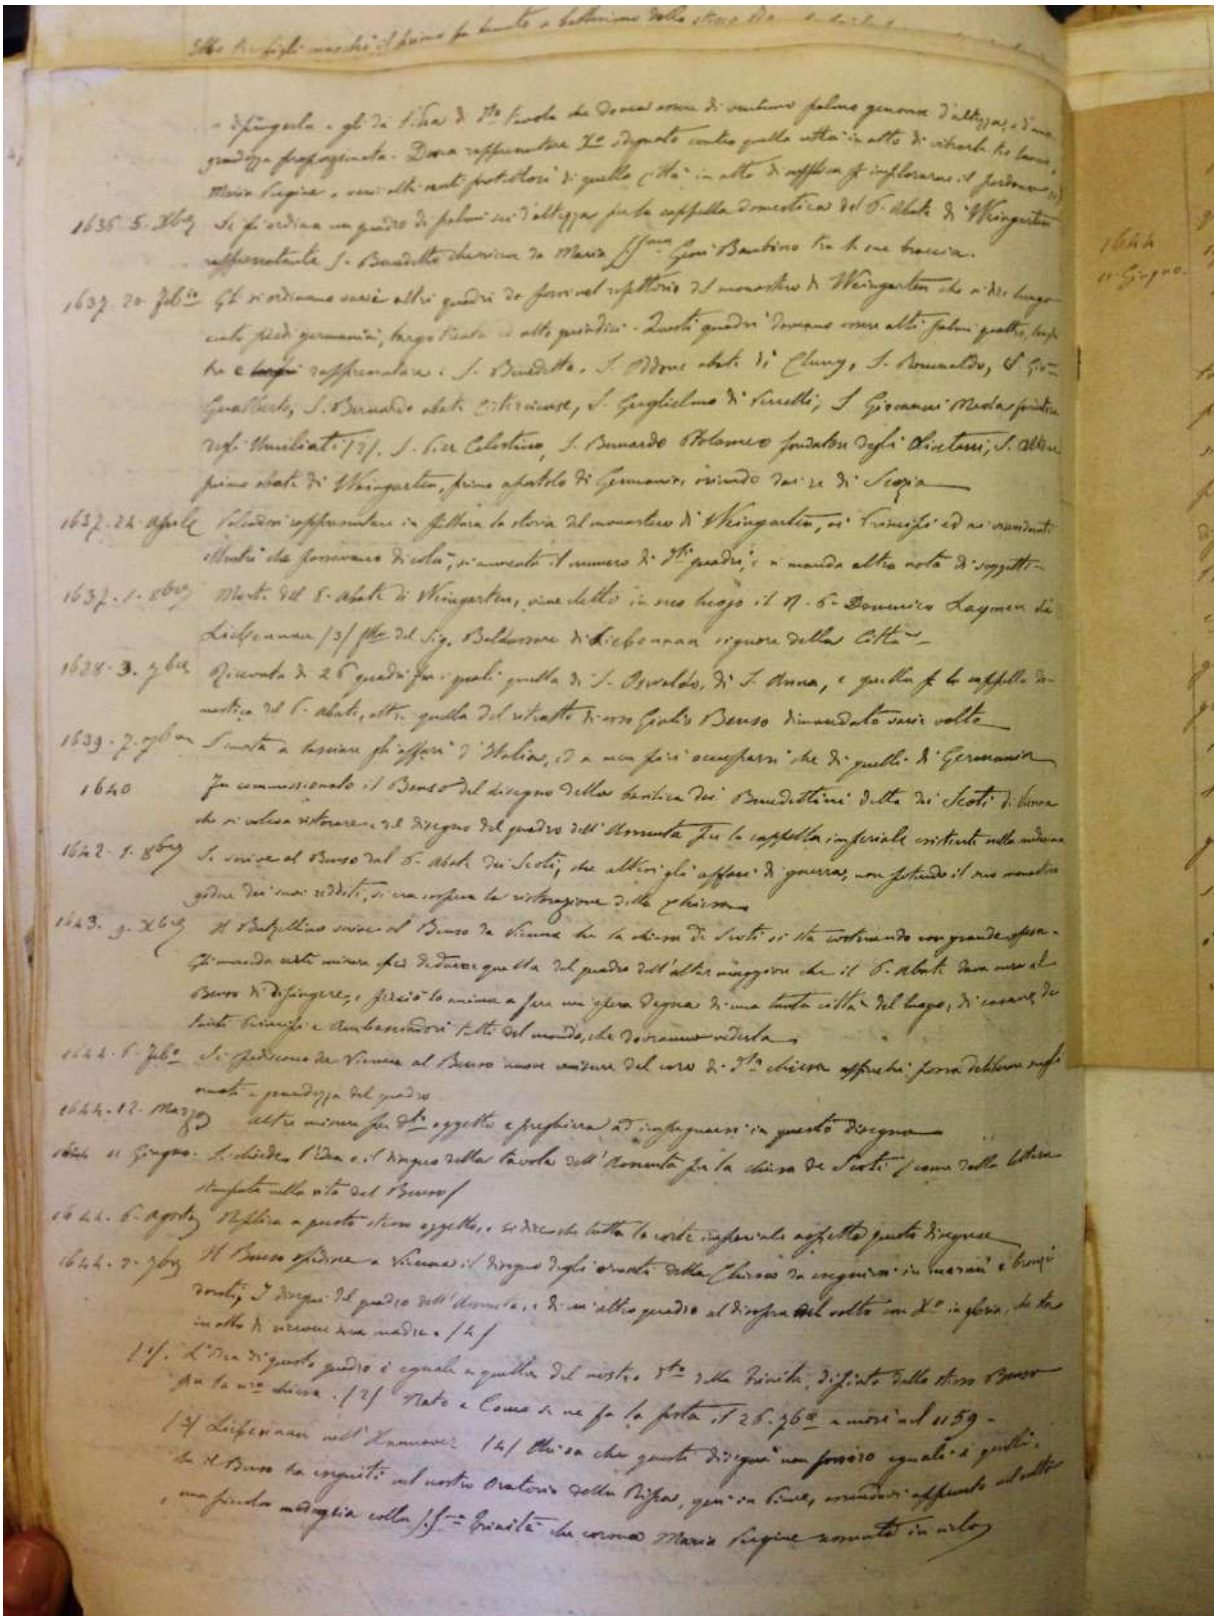 Ebbe tre figli maschi il primo fu tenuto a battesimo dallo stesso
dipingerla. gli dà l'idea di d.ta tavola che dovea essere di ventuno palmo genovese d'altezza, e d'una
grandezza proporzionata. Dovea rappresentare X.o sdegnato contro quella città in atto di vibrarle tre lancie,
Maria Vergine, e varii altri santi protettori di quella città in atto di supplica p. implorarne il perdono (1)
1636. 5. Xbre Se gli ordina un quadro di palmi sei d'altezza per la cappella domestica del P. Abate di Weingarten
rappresentante S. Benedetto che riceve da Maria SS.ma Gesù Bambino tra le sue braccia.
1637. 20. Feb.io Gli si ordinano varii altri quadri da porsi nel refettorio del monastero di Weingarten che si dice lungo
cento piedi germanini, largo trenta ed alto quindici. Questi quadri doveano essere alti palmi quattro, larghi
tre e rappresentare: S. Benedetto, S. Odone abate di Cluny, S. Romualdo, S. Gio.
Gualberto, S. Bernardo abate Cisterciense, S. Guglielmo di Vercelli, S. Giovanni Meda fondatore
degli Umiliati (2), S. Pier Celestino, S. Bernardo Ptolomeo fondatore degli Olivetani, S.
primo abate di Weingarten, primo apostolo di Germania, oriundo dai re di Scozia
1637. 24. Aprile Volendosi rappresentare in pittura la storia del monastero di Weingarten, ai Principi ed ai viandanti
illustri che passavano di colà, si aumenta il numero di d.ti quadri, e si manda altra nota di soggetti.
1637. 1. 8bre Morto del P. Abate di Weingarten, viene eletto in suo luogo il R. P. Domenico Laymen di
Liebenaan (3) f.llo del Sig. Baldassare di Liebenaan signore della Città.
1638. 3. 7bre Ricevuta di 26 quadri fra i quali quella di S. Osvaldo, di S. Anna, e quella p. la cappella do-
mestica del P. Abate, oltre quella del ritratto di esso Giulio Benso dimandato varie volte
1639. 7. 7bre S'invita a lasciare gli affari d'Italia, ed a non più occuparsi che di quelli di Germania
1640 Fu commissionato il Benso del disegno della basilica dei Benedettini detta dei Scoti di Vienna
che si voleva ristorare, e del disegno del quadro dell'Assunta per la cappella imperiale esistente nella medesima
1642. 1. 8bre Si scrive al Benso dal P. Abate dei Scoti, che attesi gli affari di guerra, non potendo il suo monastero
godere dei suoi redditi, si era sospesa la ristorazione della chiesa
1643. 9. Xbre Il Balzellino scrive al Benso da Vienna che la chiesa di Scoti si sta costruendo con grande spesa.
Gli manda certe misure per dedurre quella del quadro dell'altar maggiore che il P. Abate dava cura al
Benso di dipingere, e perciò lo anima a fare un'opera degna di una tanta città, del luogo, di Cesare, da
tanti Principi e Ambasciadori tutti del mondo, che dovranno vederla.
1644. 6. Feb.o Si spediscono da Vienna al Benso nuove misure del coro di d.ta chiesa affinché possa deliberare sugli
ornati e grandezza del quadro
1644. 12. Marzo Altre misure per d.to oggetto e preghiera ad impegnarsi in questo disegno
1644 11 Giugno. Si chiede l'idea e il disegno della tavola dell'Assunta per la chiesa de Scoti (come dalla lettera
stampata nella vita del Benso)
1644. 6. Agosto Replica a questo stesso oggetto, e si dice che tutta la corte imperiale aspetta questo disegno
1644. 7. 7bre Il Benso spedisce a Vienna il disegno degli ornati della Chiesa da eseguirsi in marmi e bronzi
dorati, I disegni del quadro dell'Assunta, e di un altro quadro al disopra nel volto con X.o in gloria, che sta
in atto di ricevere sua madre. (4)
(1). L'idea di questo quadro è eguale a quella del nostro d.to della Trinità, dipinto dallo stesso Benso
per la n.ra chiesa. (2) Nato a Como se ne fa la festa il 26. 7bre e morì nel 1159.
(3) Liebenaan nell'Hannover (4) Chi sa che questi disegni non fossero eguali a quelli,
che il Benso ha eseguiti nel nostro Oratorio della Ripa, qui in Pieve, essendovi appunto nel volto
una piccola medaglia colla SS.ma Trinità che corona Maria Vergine assunta in cielo
1644
11. Giugno.